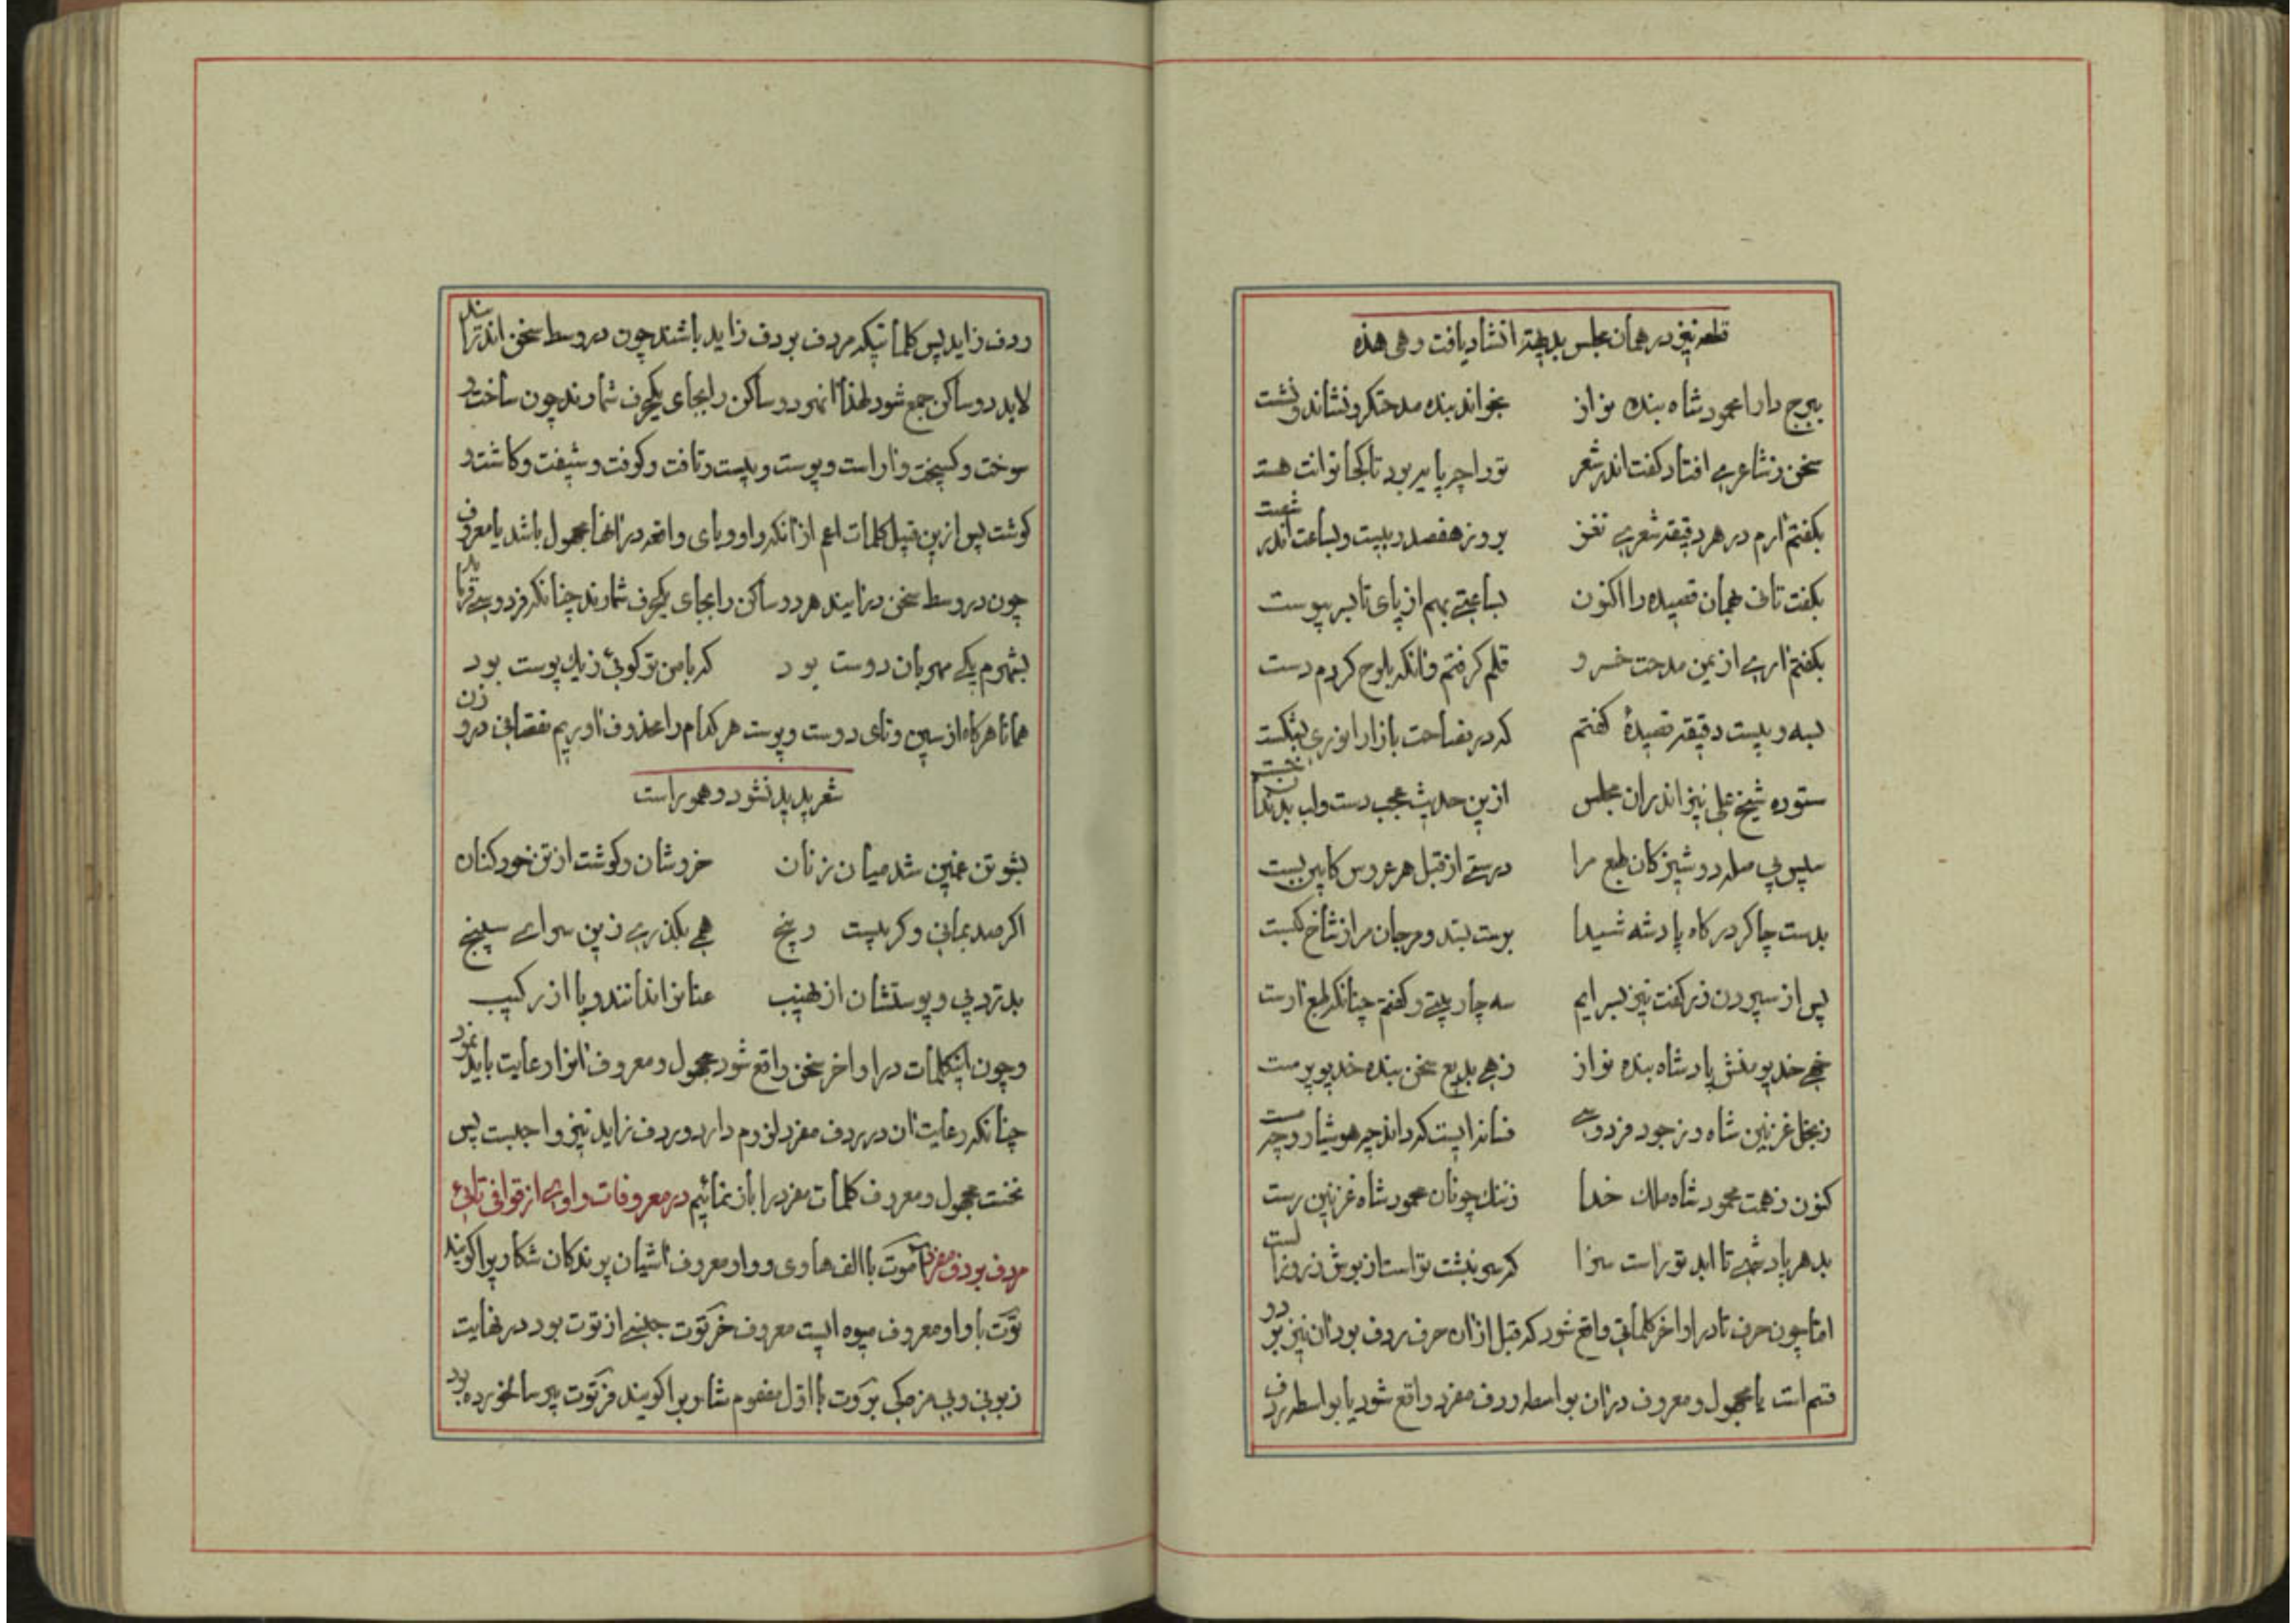 قطعه نیز در همان مجلس بدیهة انشاد یافت و هی هذه
ببرج دارا محمود شاه بنده نواز بخواند بنده مدحتگر و نشاند و نشست
سخن ز شاعری افتاد گفت اندر شعر تو را چه پایه بود تا کجا توانت هست
بگفتم ارم در هر دقیقه شعری نغز بروز هفصد و بیست و بساعت اندر شصت
بگفت تانی همان قصیده را اکنون بساعتی بهم از پای تا بسر پیوست
بگفتم اری از یمن مدحت خسرو قلم گرفتم و انگه بلوح کردم دست
بسه و بیست دقیقه قصیدهٔ گفتم که در فصاحت بازار انوری بشکست
ستوده شیخ علی نیز اندران مجلس ازین حدیث عجب دست و لب بدندان خست
سپس پی صله دوشیزگان طبع مرا درستی از قبل هر عروس کابین بست
بدست چاکر درگاه پادشه شیدا بوست بُسّد و مرجان مرا ز شاخ گسست
پس از سپردن زر گفت نیز بسرایم سه چار بیتی و گفتم چنانکه طبع ارست
خهی خدیو منش پادشاه بنده نواز زهی بدیع سخن بنده خدیو پرست
ز بخل غزنین شاه و ز جود فردوسی فسانه ایست که داند چه هوشیار و چه مست
کنون ز همت محمود شاه ملک خدا ز ننگ چونان محمود شاه غزنین رست
بدهر پادشهی تا ابد تو راست سزا که سرنبشت تو است از بوش ز روز الست
امّا چون حرف تا در اواخر کلماتی واقع شود که قبل از ان حرف ردف بود ان نیز بر دو
قسم است یا مجهول و معروف در ان بواسطه ردف مفرد واقع شود یا بواسطه ردف
ردف زاید پس کلماتیکه مردف بردف زاید باشند چون در وسط سخن اندر آیند
لابد دو ساکن جمع شود لهذا انهر دو ساکن را بجای یکحرف شمارند چون ساخت و
سوخت و گسیخت و اراست و پوست و بیست و تافت و کوفت و شیفت و کاشت و
گوشت پس ازین قبیل کلمات اعم از انکه واو و یای واقعه در انها مجهول باشد یا معروف
چون در وسط سخن در ایند هر دو ساکن را بجای یکحرف شمارند چنانکه فردوسی فرماید
بشهرم یکی مهربان دوست بود که با من تو گوئی ز یک پوست بود
همانا هرگاه از سین و تای دوست و پوست هر کدام را محذوف اوریم نقصانی در وزن
شعر پدید نشود و هموراست
بشوتن غمین شد میان زنان خروشان و گوشت از تن خود کنان
اگر صد بمانی و گر بیست و پنج همی بگذری زین سرای سپنج
بدرد پی و پوستشان از نهیب عنان را ندانند و پا از رکیب
و چون اینکلمات در اواخر سخن واقع شود مجهول و معروف انرا رعایت باید نمود
چنانکه رعایت ان در ردف مفرد لزوم دارد و ردف زاید نیز واجبست پس
نخست مجهول و معروف کلمات مفرد را بان نمائیم در معروفات واوی از قوافی تائی
مردف بردف مفرد اَموت با الف هاوی و واو معروف اشیان پرندگان شکاریرا گویند
توت با واو معروف میوه ایست معروف خرتوت جنسی از توت بود در نهایت
زبونی و بی مزگی بروت با اول مضموم شارب را گویند فرتوت پیر سالخورده بود